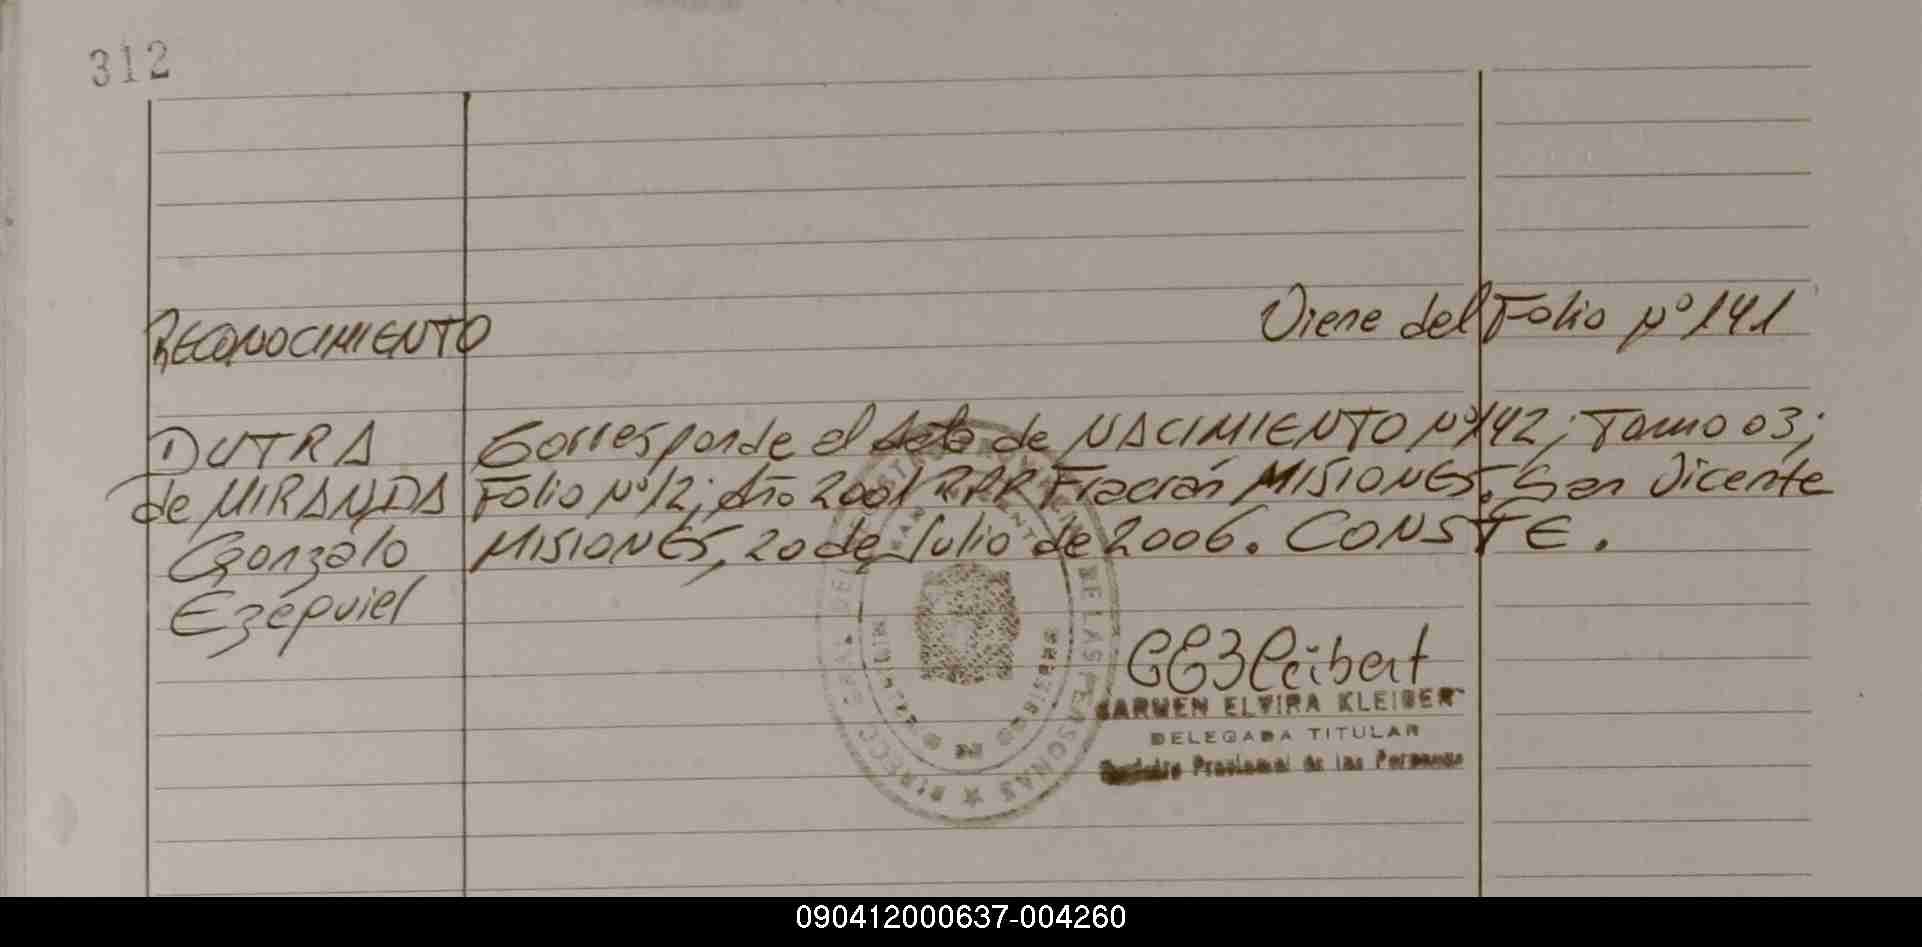 312
RECONOCIMIENTO
Viene del Folio Nº 141
DUTRA
de MIRANDA
Gonzalo
Ezequiel
Corresponde al Acta de NACIMIENTO Nº 142; Tomo 03;
Folio Nº 12; Año 2001 RPR Fracrán MISIONES. San Vicente
MISIONES, 20 de Julio de 2006. CONSTE.
CARMEN ELVIRA KLEIBER
DELEGADA TITULAR
Registro Provincial de las Personas
DE LAS PERSONAS ★ DIRECC
090412000637-004260